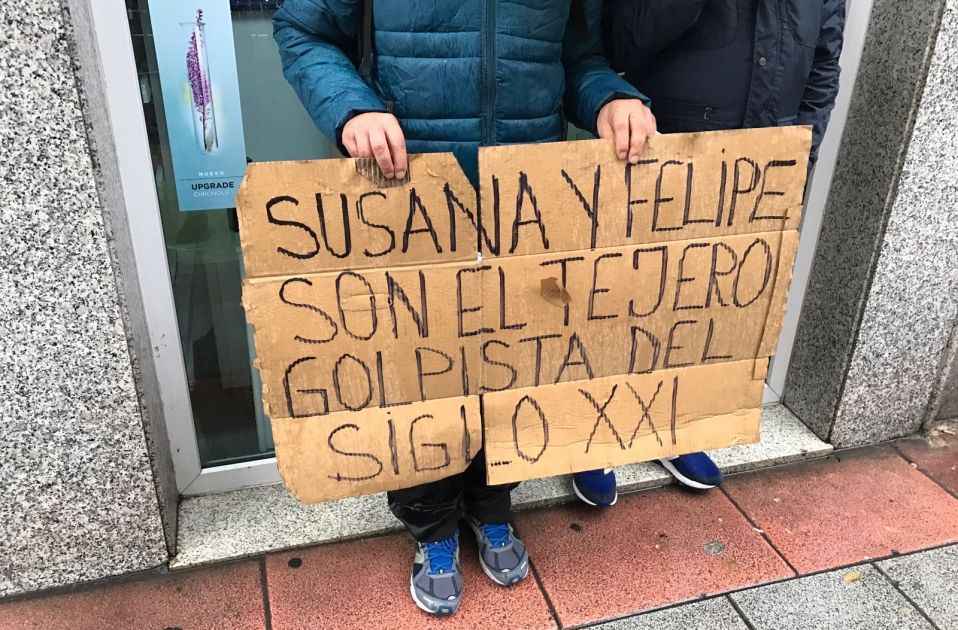 NUEVO
UPGRADE
CHRONOLO
SUSANA Y FELIPE
SON EL TEJERO
GOLPISTA DEL
SIGLO XXI